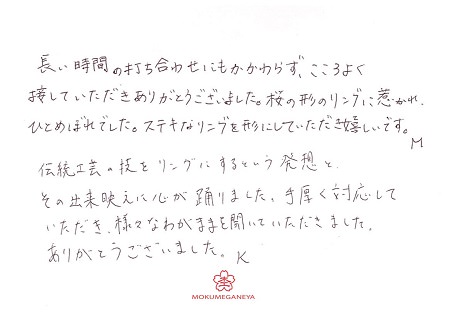 長い時間の打ち合わせにもかかわらず、こころよく
接していただきありがとうございました。桜の形のリングに惹かれ、
ひとめぼれでした。ステキなリングを形にしていただき嬉しいです。
M
伝統工芸の技をリングにするという発想と、
その出来映えに心が踊りました。手厚く対応して
いただき、様々なわがままを聞いていただきました。
ありがとうございました。 K
MOKUMEGANEYA